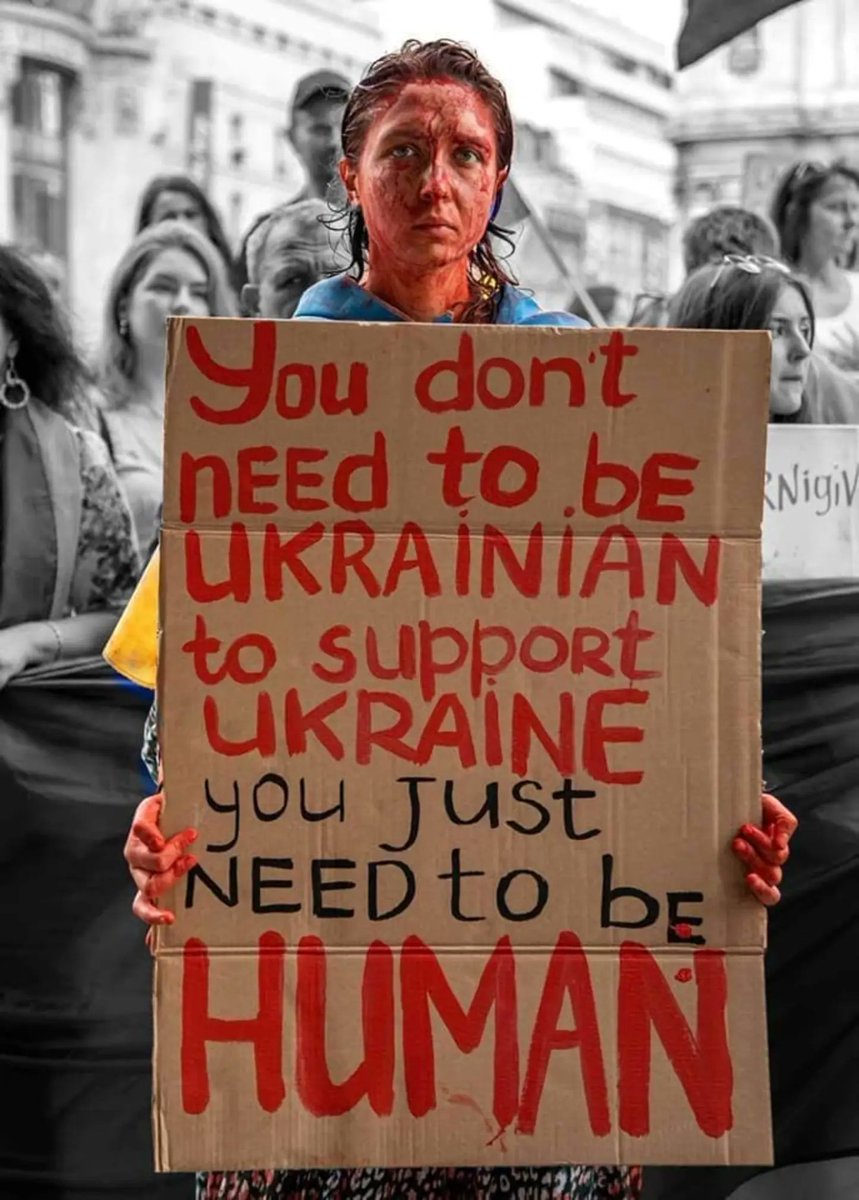 You don't
nEEd to bE
UKRAiNiAN
to suppoRt
UKRAiNE
you Just
NEED to bE
HUMAN